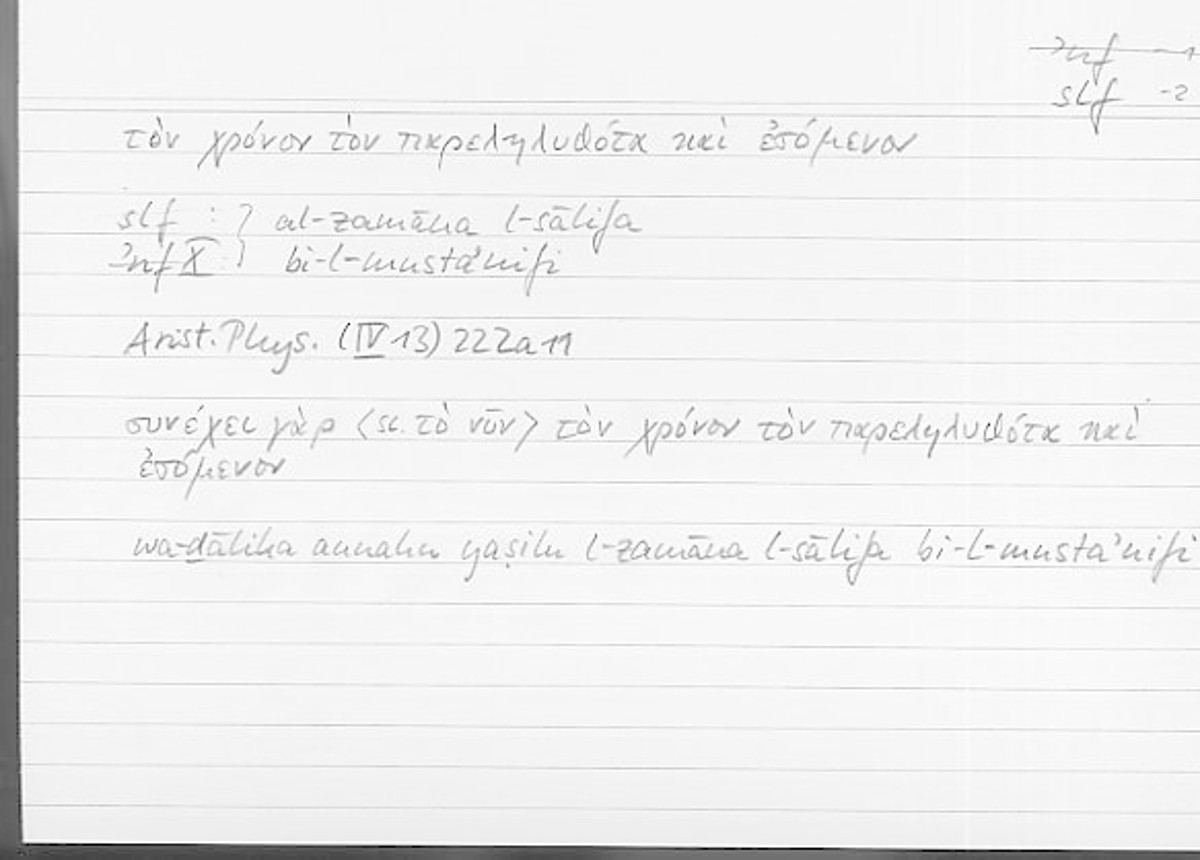 ʾnf -1
slf -2
τὸν χρόνον τὸν παρεληλυθότα καὶ ἐσόμενον
slf : } al-zamāna l-sālifa
ʾnf X : } bi-l-mustaʾnifi
Arist. Phys. (IV 13) 222a11
συνέχει γὰρ <sc. τὸ νῦν> τὸν χρόνον τὸν παρεληλυθότα καὶ
ἐσόμενον
wa-ḏālika annahu yaṣilu l-zamāna l-sālifa bi-l-mustaʾnifi